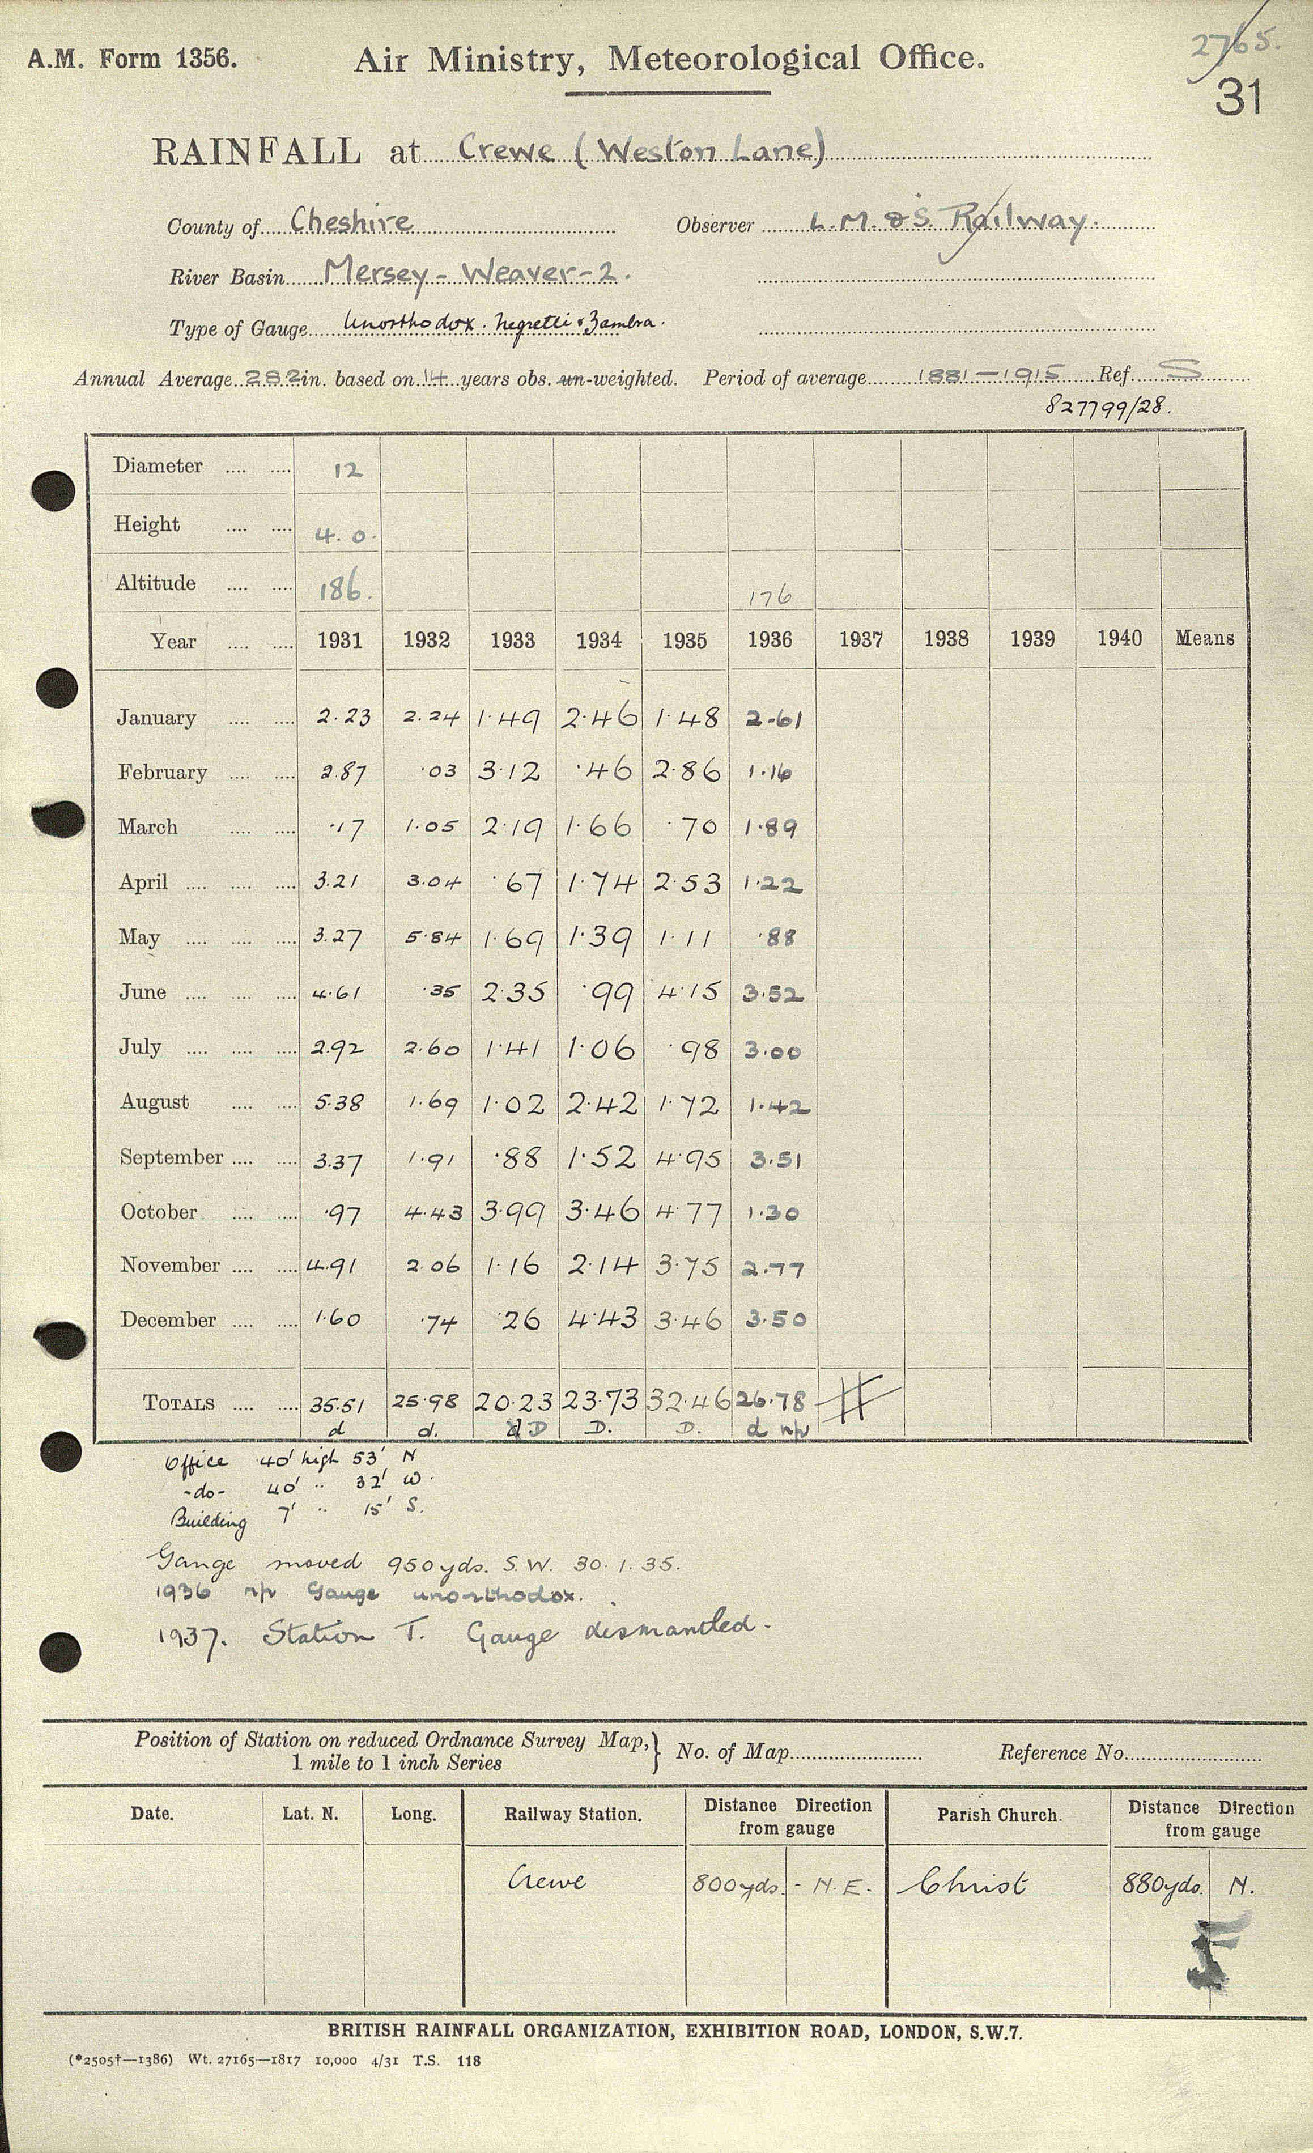 2765.
A.M. Form 1356.
Air Ministry, Meteorological Office.
31
RAINFALL at Crewe (Weston Lane)
County of Cheshire Observer L.M. & S. Railway.
River Basin Mersey - Weaver - 2.
Type of Gauge Unorthodox. Negretti & Zambra.
Annual Average 28.2 in. based on 14 years obs. un-weighted. Period of average 1881-1915 Ref. S
827799/28.
Diameter 12
Height 4.0.
Altitude 186. 176
Year 1931 1932 1933 1934 1935 1936 1937 1938 1939 1940 Means
January 2.23 2.24 1.49 2.46 1.48 2.61
February 2.87 .03 3.12 .46 2.86 1.16
March .17 1.05 2.19 1.66 .70 1.89
April 3.21 3.04 .67 1.74 2.53 1.22
May 3.27 5.84 1.69 1.39 1.11 .88
June 4.61 .35 2.35 .99 4.15 3.52
July 2.92 2.60 1.41 1.06 .98 3.00
August 5.38 1.69 1.02 2.42 1.72 1.42
September 3.37 1.91 .88 1.52 4.95 3.51
October .97 4.43 3.99 3.46 4.77 1.30
November 4.91 2.06 1.16 2.14 3.75 2.77
December 1.60 .74 .26 4.43 3.46 3.50
TOTALS 35.51 25.98 20.23 23.73 32.46 26.78
d d. d D D. D. d np
Office 40' high 53' N
-do- 40' " 32' W.
Building 7' " 15' S.
Gauge moved 950yds. S.W. 30.1.35.
1936 np Gauge unorthodox.
1937. Station T. Gauge dismantled.
Position of Station on reduced Ordnance Survey Map,
1 mile to 1 inch Series } No. of Map Reference No.
Date. Lat. N. Long. Railway Station. Distance Direction from gauge Parish Church. Distance Direction from gauge
Crewe 800yds. - N.E. Christ 880yds. N.
BRITISH RAINFALL ORGANIZATION, EXHIBITION ROAD, LONDON, S.W.7.
(*2505†—1386) Wt. 27165—1817 10,000 4/31 T.S. 118